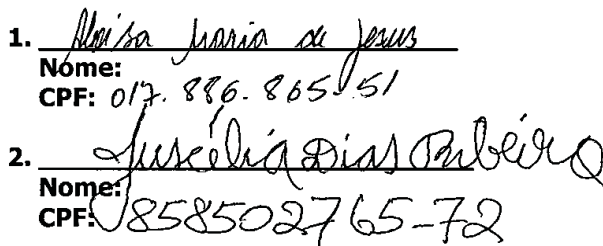 1. Aloisa Maria de Jesus
Nome:
CPF: 017.886.865-51
2. Juscélia Dias Ribeiro
Nome:
CPF: 858502765-72